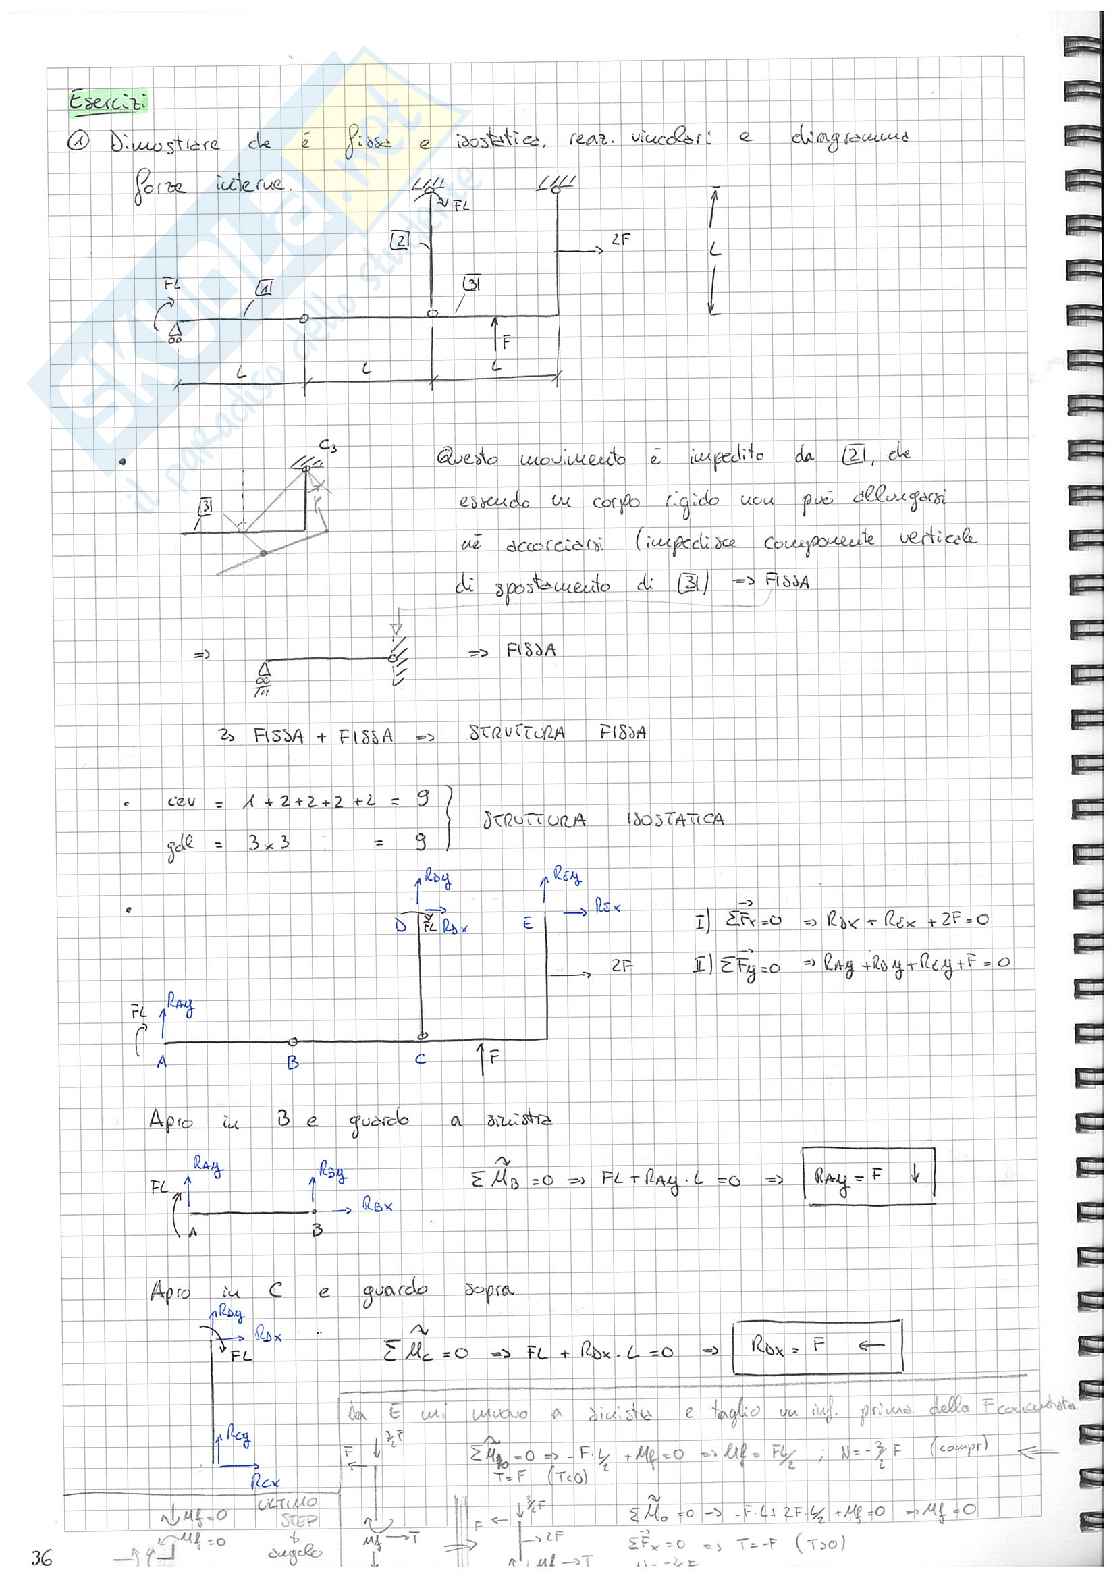 Esercizi
① Dimostrare che è fissa e isostatica, reaz. vincolari e diagramma
forze interne.
FL
2
2F
L
FL
1
3
F
L
L
L
C3
3
Questo movimento è impedito da 2, che
essendo un corpo rigido non può allungarsi
né accorciarsi (impedisce componente verticale
di spostamento di 3) => FISSA
=>
=> FISSA
FISSA + FISSA => STRUTTURA FISSA
cev = 1+2+2+2+2 = 9
gdl = 3x3 = 9
STRUTTURA ISOSTATICA
RDy
REy
D
FL
RDx
E
REx
I) ΣFx=0 => RDx + REx + 2F=0
2F
II) ΣFy=0 => RAy+RDy+REy+F=0
FL
RAy
A
B
C
F
Apro in B e guardo a sinistra
RAy
RBy
FL
RBx
A
B
ΣMB=0 => FL+RAy·L=0 => RAy=F ↓
Apro in C e guardo sopra
RDy
RDx
FL
ΣMC=0 => FL+RDx·L=0 => RDx=F ←
RCy
RCx
Da E mi muovo a sinistra e taglio un inf. prima della F concentrata
F
3/2F
Mf
T
ΣMo=0 => -F·L/2 + Mf=0 => Mf=FL/2 ; N=-3/2F (compr)
T=F (T<0)
Mf=0
Mf=0
ULTIMO
STEP
angolo
F
3/2F
2F
Mf → T
ΣMo=0 -> -F·L+2F·L/2+Mf=0 -> Mf=0
ΣFx=0 => T=-F (T>0)
36